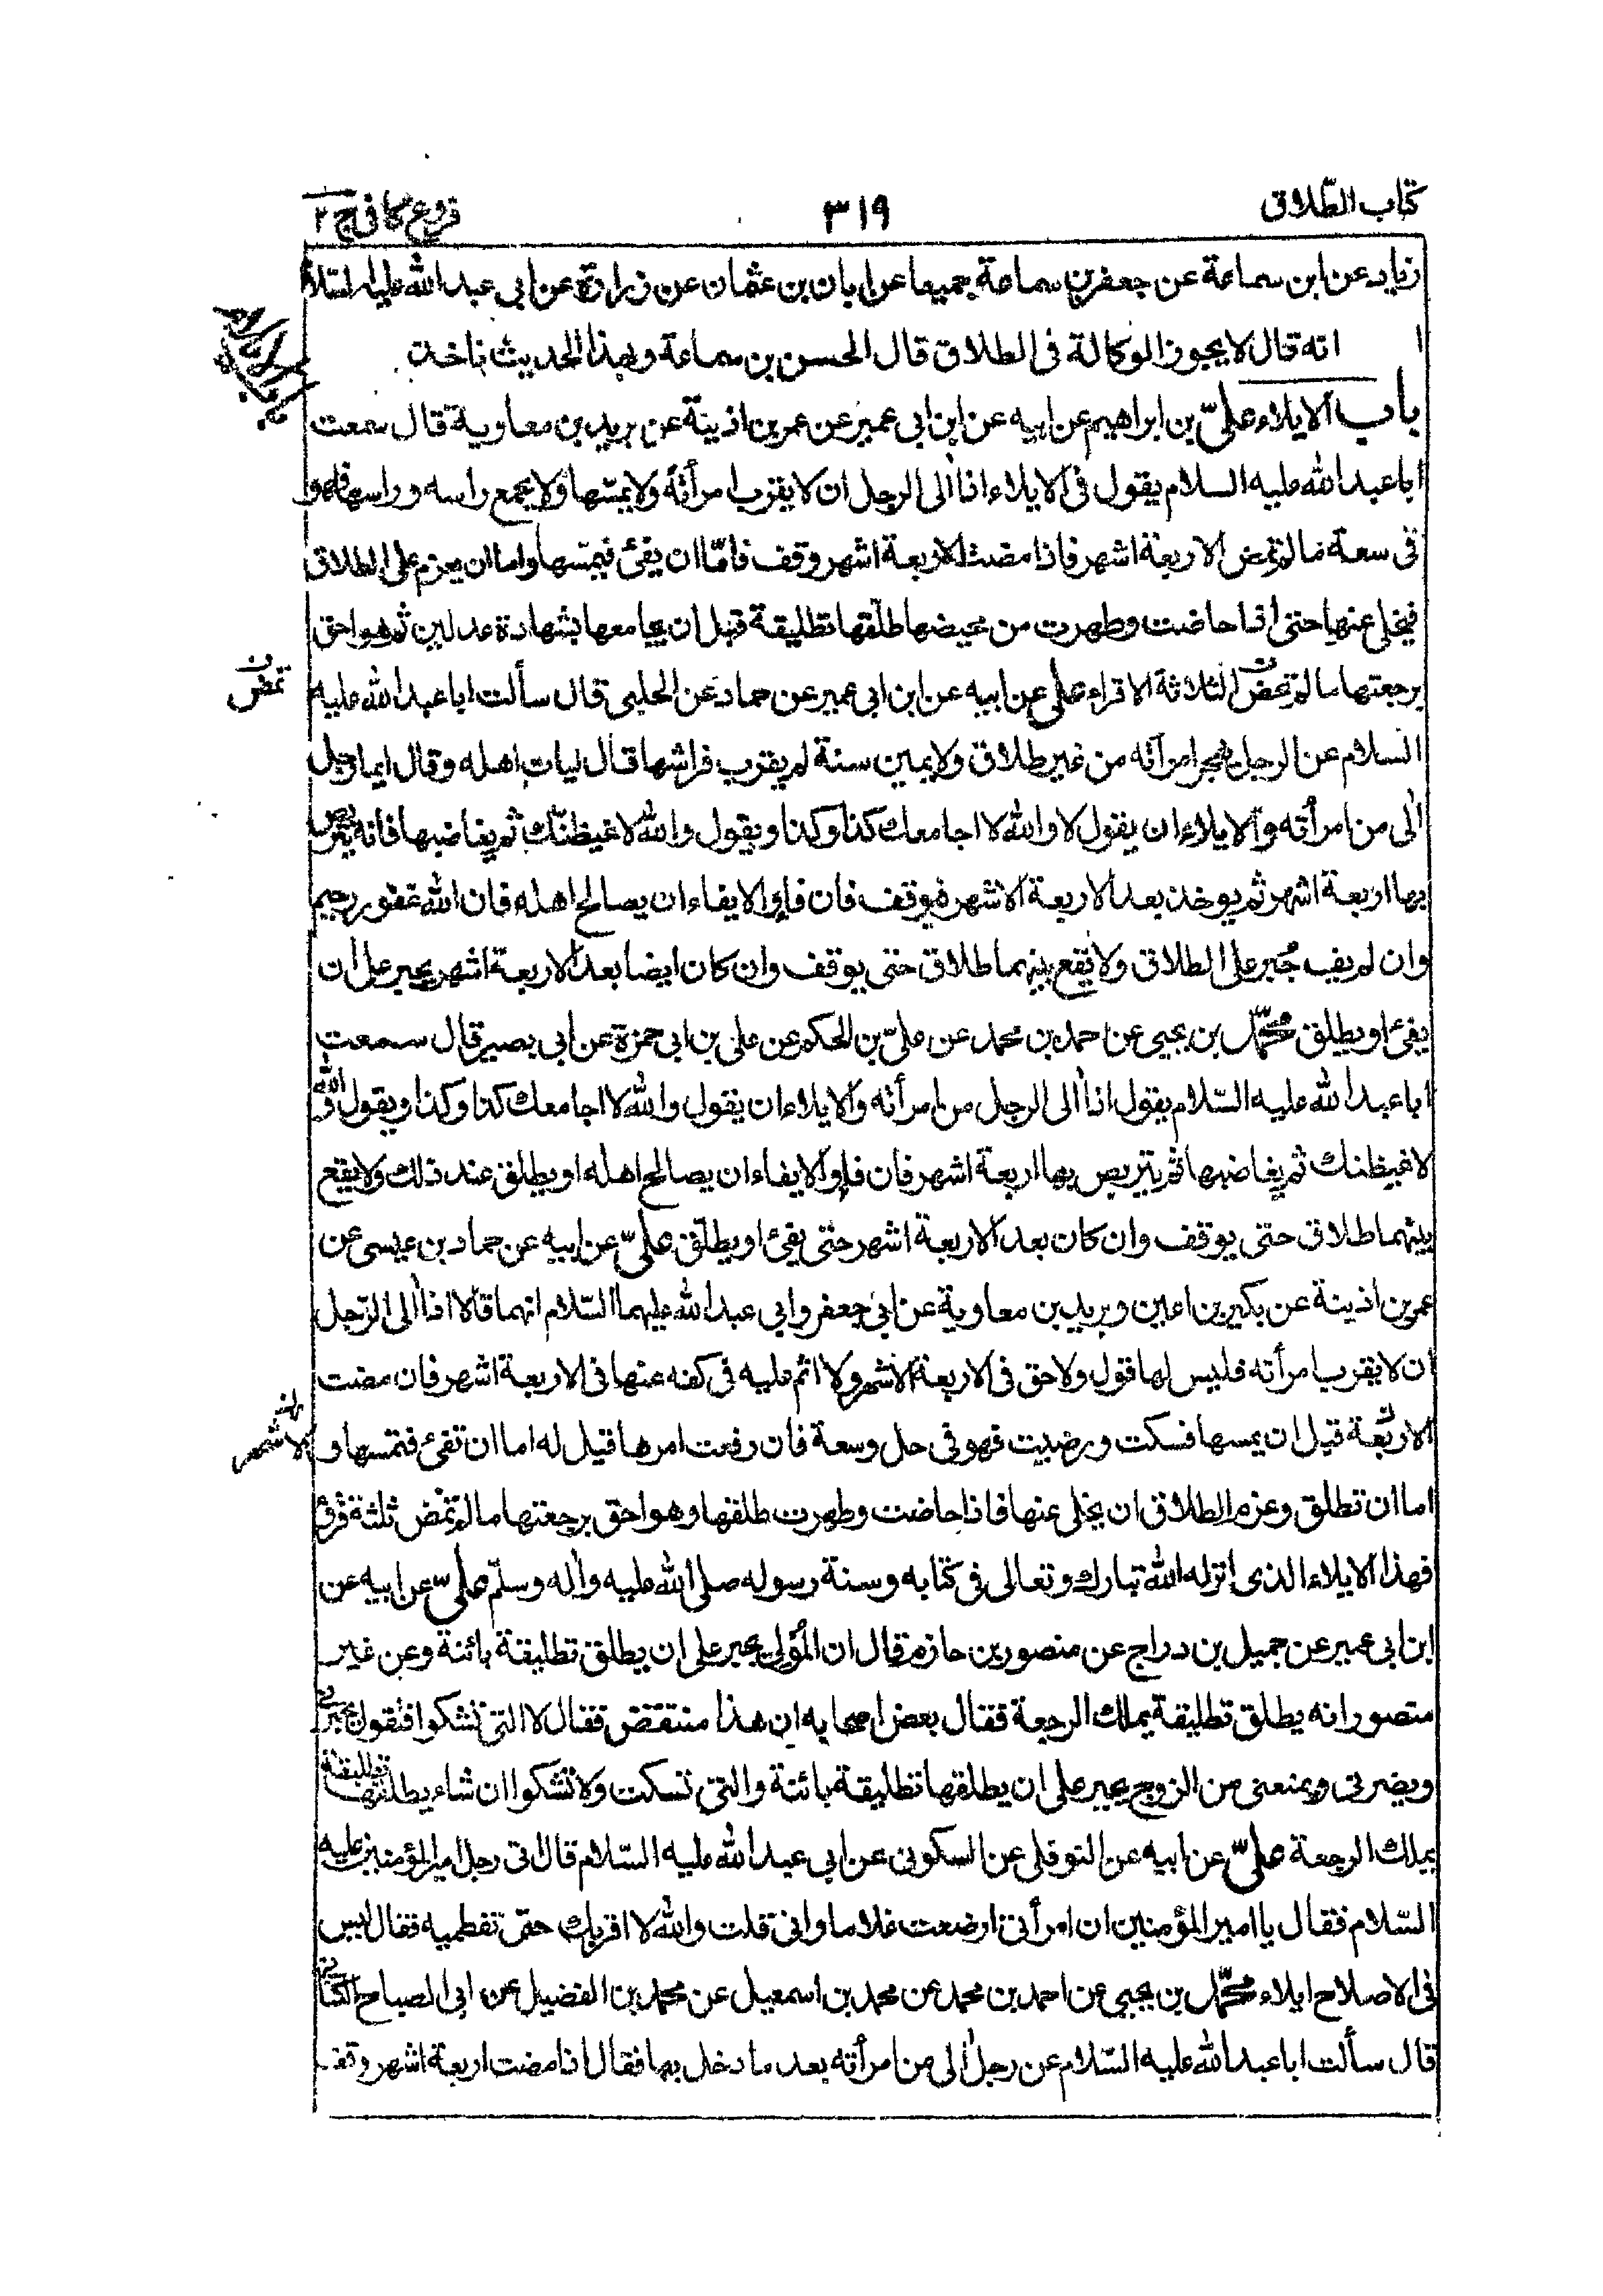 كتاب الطّلاق
٣١٩
فروع كافى ج ٢
زياد عن ابن سماعة عن جعفر بن سماعة جميعا عن ابان بن عثمان عن زرارة عن ابى عبد الله عليه السّلام
انه قال لا يجوز الوكالة فى الطلاق قال الحسن بن سماعة وبهذا الحديث ناخذ
باب الايلاء علىّ بن ابراهيم عن ابيه عن ابن ابى عمير عن عمر بن اذينة عن بريد بن معاوية قال سمعت
ابا عبد الله عليه السلام يقول فى الايلاء اذا آلى الرجل ان لا يقرب امرأته ولا يمسّها ولا يجمع راسه وراسها فهو
فى سعة ما لم تمض الاربعة اشهر فاذا مضت الاربعة اشهر وقف فامّا ان يفئ فيمسّها واما ان يعزم على الطلاق
فيخلى عنها حتى اذا حاضت وطهرت من محيضها طلّقها تطليقة قبل ان يجامعها بشهادة عدلين ثم هو احق
برجعتها ما لم تمض الثلاثة الاقراء على عن ابيه عن ابن ابى عمير عن حماد عن الحلبى قال سألت ابا عبد الله عليه
تمض ن
السلام عن الرجل يهجر امرأته من غير طلاق ولا يمين سنة لم يقرب فراشها قال ليات اهله وقال ايما رجل
آلى من امرأته والايلاء ان يقول لا والله لا اجامعك كذا وكذا ويقول والله لاغيظنّك ثم يغاضبها فانه يتربص
بها اربعة اشهر ثم يوخذ بعد الاربعة الاشهر فيوقف فان فاؤ والايفاء ان يصالح اهله فان الله غفور رحيم
وان لم يف جُبر على الطلاق ولا يقع بينهما طلاق حتى يوقف وان كان ايضا بعد الاربعة اشهر يجبر على ان
يفئ او يطلق محمّد بن يحيى عن احمد بن محمد عن علىّ بن الحكم عن على بن ابى حمزة عن ابى بصير قال سمعت
ابا عبد الله عليه السّلام يقول اذا آلى الرجل من امرأته والايلاء ان يقول والله لا اجامعك كذا وكذا ويقول والله
لاغيظنك ثم يغاضبها ثم يتربص بها اربعة اشهر فان فاؤ والايفاء ان يصالح اهله او يطلق عند ذلك ولا يقع
بينهما طلاق حتى يوقف وان كان بعد الاربعة اشهر حتى يفئ او يطلّق علىّ عن ابيه عن حماد بن عيسى عن
عمر بن اذينة عن بكير بن اعين وبريد بن معاوية عن ابى جعفر وابى عبد الله عليهما السّلام انهما قالا اذا آلى الرّجل
ان لا يقرب امرأته فليس لها قول ولا حق فى الاربعة الاشهر ولا اثم عليه فى كفه عنها فى الاربعة اشهر فان مضت
الاربعة قبل ان يمسها فسكت ورضيت فهو فى حل وسعة فان رفعت امرها قيل له اما ان تفئ فتمسها و
الاشهر
اما ان تطلق وعزم الطلاق ان يخلى عنها فاذا حاضت وطهرت طلقها وهو احق برجعتها ما لم تمض ثلثة قروء
فهذا الايلاء الذى انزله الله تبارك وتعالى فى كتابه وسنة رسوله صلى الله عليه وآله وسلّم علىّ عن ابيه عن
ابن ابى عمير عن جميل بن دراج عن منصور بن حازم قال ان المُؤلى يجبر على ان يطلق تطليقة بائنة وعن غير
منصور انه يطلق تطليقة يملك الرجعة فقال بعض اصحابه ان هذا منتقض فقال لا التى تشكوا فتقول يجبرنى
ويضرنى ويمنعنى من الزوج يجبر على ان يطلقها تطليقة بائنة والتى تسكت ولا تشكوا ان شاء يطلقها تطليقة
يملك الرجعة علىّ عن ابيه عن النوفلى عن السكونى عن ابى عبد الله عليه السّلام قال اتى رجل امير المؤمنين عليه
السّلام فقال يا امير المؤمنين ان امرأتى ارضعت غلاما وانى قلت والله لا اقربك حتى تفطميه فقال ليس
فى الاصلاح ايلاء محمّد بن يحيى عن احمد بن محمد عن محمد بن اسمعيل عن محمد بن الفضيل عن ابى الصباح الكنانى
قال سألت ابا عبد الله عليه السّلام عن رجل آلى من امرأته بعد ما دخل بها فقال اذا مضت اربعة اشهر وقف